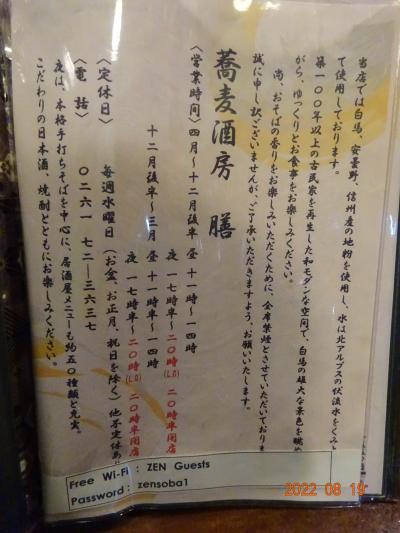 当店では白馬、安曇野、信州産の地粉を使用し、水は北アルプスの伏流水をくみ
て使用しております。
築一〇〇年以上の古民家を再生した和モダンな空間で、白馬の雄大な景色を眺め
がら、ゆっくりとお食事をお楽しみください。
尚、おそばの香りをお楽しみいただくために、全席禁煙とさせていただいておりま
誠に申し訳ございませんが、ご了承いただきますよう、お願いいたします。
蕎麦酒房 膳
〈営業時間〉四月〜十二月後半 昼 十一時〜一四時
夜 一七時半〜二〇時(L.O) 二〇時半閉店
十二月後半〜三月 昼 十一時半〜一四時
夜 一七時半〜二〇時(L.O) 二〇時半閉店
〈定休日〉 毎週水曜日(お盆、お正月、祝日を除く) 他不定休あ
〈電 話〉 〇二六一 七二―三六三七
夜は、本格手打ちそばを中心に、居酒屋メニューも約五〇種類と充実。
こだわりの日本酒、焼酎とともにお楽しみください。
Free Wi-Fi : ZEN Guests
Password : zensoba1
2022 08 19